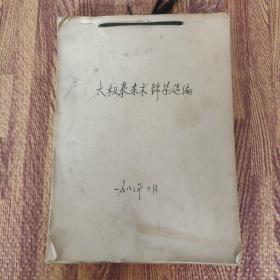 太极拳来术锦集选编
一九八三年二月